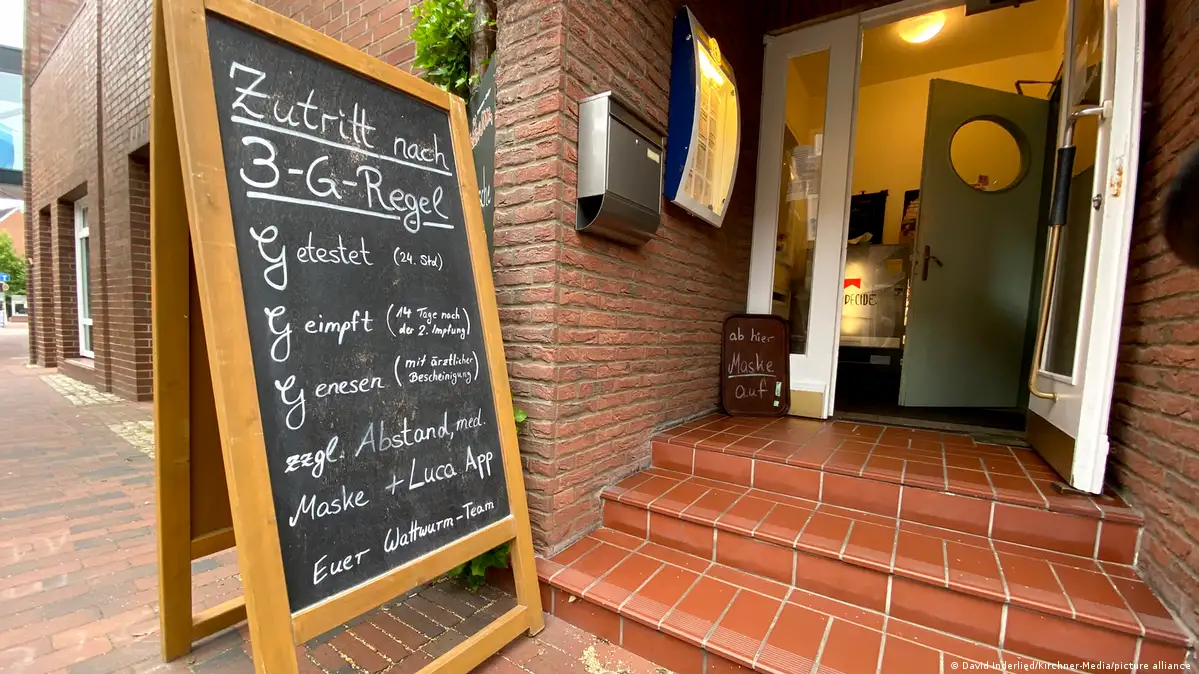 Zutritt nach
3-G-Regel
Getestet (24. Std)
Geimpft (14 Tage nach
der 2. Impfung)
Genesen (mit ärztlicher
Bescheinigung)
zzgl. Abstand, med.
Maske + Luca App
Euer Wattwurm-Team
ab hier
Maske
auf
DECIDE
© David Inderlied/Kirchner-Media/picture alliance